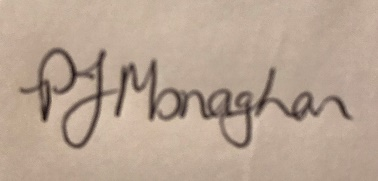 PJ Monaghan